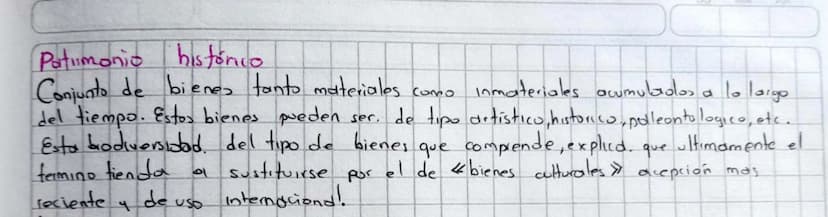 Patrimonio histórico
Conjunto de bienes tanto materiales como inmateriales acumulados a lo largo
del tiempo. Estos bienes pueden ser. de tipo artístico, historico, paleontologico, etc.
Esta biodiversidad. del tipo de bienes que comprende, explica. que ultimamente el
termino tienda a sustituirse por el de «bienes culturales» acepción mas
reciente y de uso internacional.